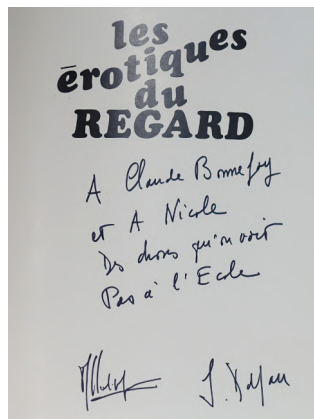 les
érotiques
du
REGARD
A Claude Bonnefoy
et A Nicole
Des choses qu'on voit
Pas à l'Ecole